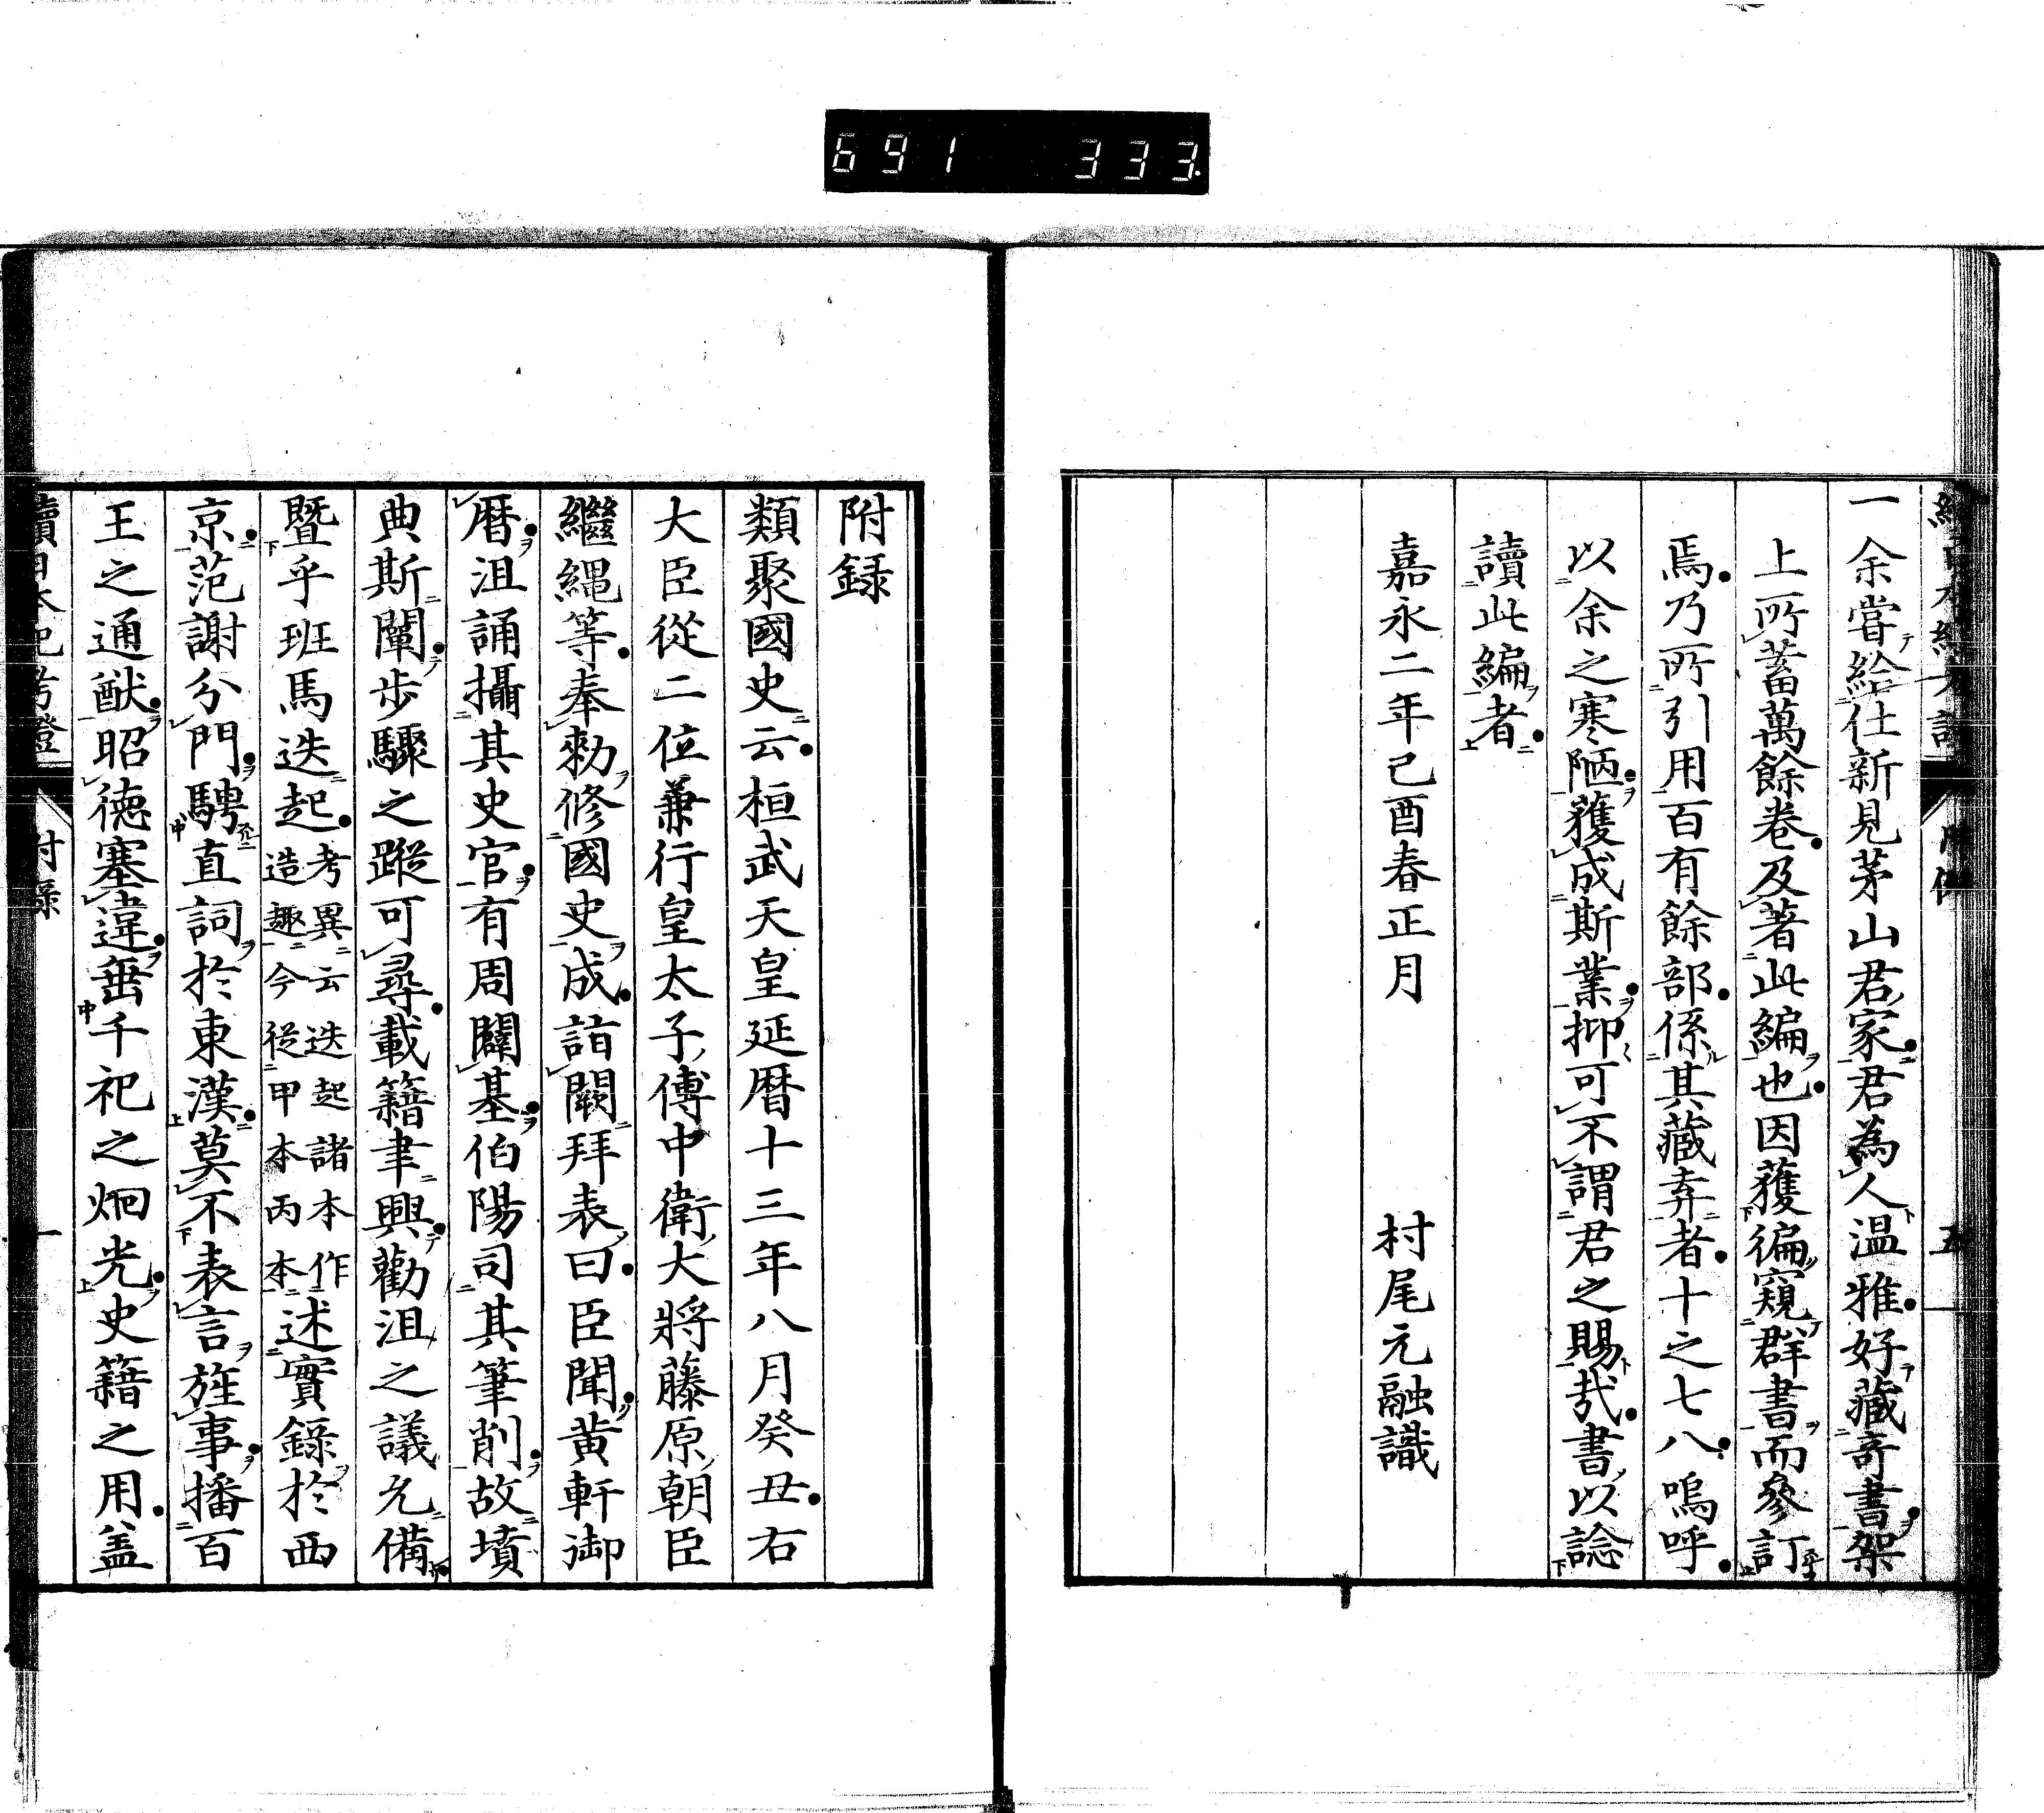 691 333
一余嘗給仕新見茅山君家君為人温雅好藏奇書架
上所蓄萬餘卷及著此編也因獲徧窺群書而參訂
焉乃所引用百有餘部係其藏弆者十之七八嗚呼
以余之寒陋獲成斯業抑可不謂君之賜哉書以諗
讀此編者
嘉永二年己酉春正月 村尾元融識
附録
類聚國史云桓武天皇延暦十三年八月癸丑右
大臣從二位兼行皇太子傅中衛大將藤原朝臣
繼繩等奉勅修國史成詣闕拜表曰臣聞黄軒御
暦沮誦攝其史官有周闢基伯陽司其筆削故墳
典斯闡步驟之蹤可尋載籍聿興勸沮之議允備
暨乎班馬迭起考異云迭起諸本作造趣今從甲本丙本述實錄於西
京范謝分門騁直詞於東漢莫不表言旌事播百
王之通猷昭德塞違垂千祀之炯光史籍之用蓋
續日本紀考證 附錄 一